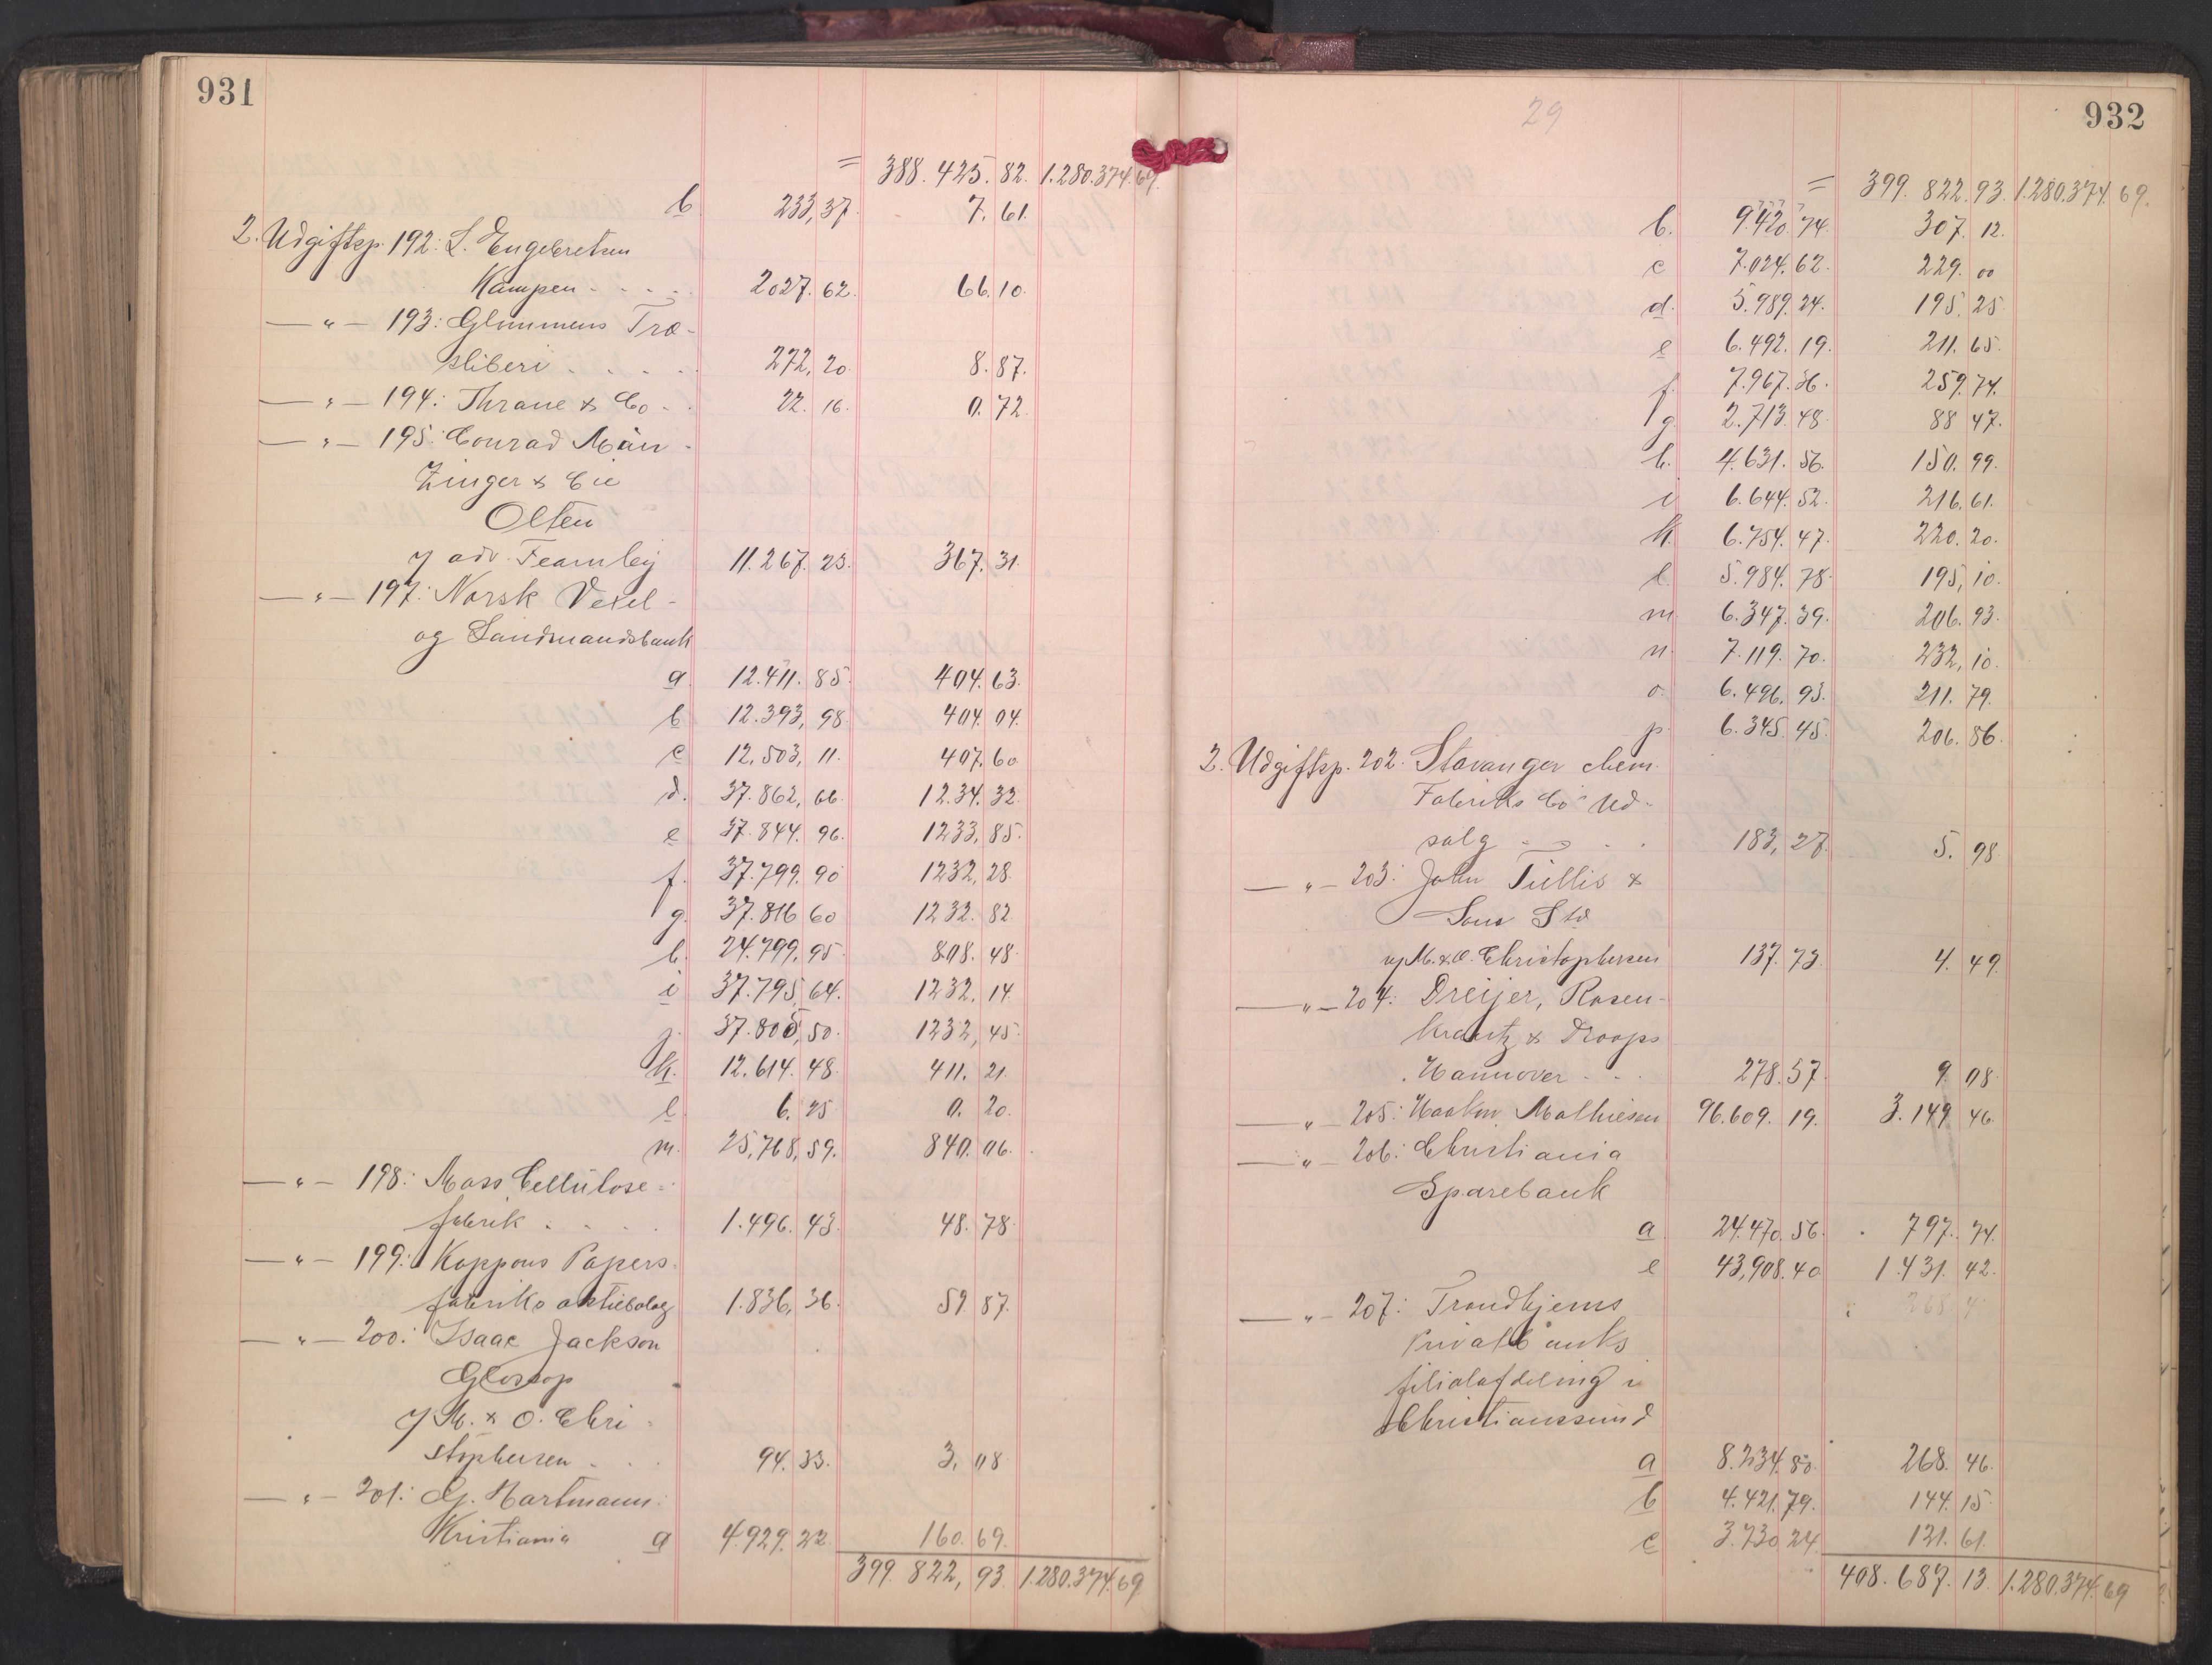 931
= 388.425.82. 1.280.374.69.
b 233,37. 7.61.
2. Udgiftsp. 192: L. Engebretsen
Kampen - - - - 2027.62. 66.10.
— " — 193: Glommens Træ-
sliberi . . . . . 272,20 8.87.
— " — 194: Thrane & Co - . 22.16. 0.72.
— " — 195: Conrad Mün-
Zinger & Cie
Olten
v/ adv. Fearnley 11.267.23. 367.31.
— " — 197: Norsk Vexel-
og Landmandsbank
a 12.411.85. 404.63.
b 12.393,98. 404.04.
c 12.503,11. 407.60
d. 37.862,66. 12.34.32.
e 37.844.96. 1233,85.
f. 37.799.90 1232.28.
g. 37.816 60 1232.82
h. 24.799.95. 808.48.
i 37.795,64. 1232.14.
j. 37.805,50. 1232,45.
k. 12.614.48. 411.21.
l. 6.25 0.20.
m. 25,768,59. 840.06.
— " — 198: Moss Cellulose-
fabrik . . . . 1.496.43. 48.78.
— " — 199: Koppons Papers-
fabriks aktiebolag 1.836,36. 59.87.
— " — 200: Isaac Jackson
Glossop
v/ M. & O. Chri-
stophersen - . . 94.33. 3,08.
— " — 201: G. Hartmann.
Kristiania a 4.929.22. 160.69.
399.822,93. 1.280.374.69.
29
932
= 399.822.93. 1.280.374.69.
b. 9.420.74. 307.12.
c 7.024.62. 229.00
d. 5.989.24. 195.25.
e 6.492.19. 211.65.
f. 7.967.36. 259.74.
g. 2.713.48. 88 47.
h. 4.631.56. 150.99.
i 6.644.52. 216.61.
k. 6.754.47. 220.20.
l. 5.984.78. 195,10.
m. 6.347.39. 206.93.
n. 7.119.70. 232,10.
o. 6.496.93. 211.79.
p. 6.345.45. 206.86.
2. Udgiftsp. 202. Stavanger chem.
Fabriks Co's Ud-
salg - - . . 183,27. 5.98.
— " — 203: John Tullis &
Sons Ltd
v/ M. & O. Christophersen 137.73. 4.49.
— " — 204: Dreijer, Rosen-
krantz & Droops
Hannover - - . 278.57. 9.08.
— " — 205: Haakon Mathiesen 96.609.19. 3.149.46.
— " — 206: Christiania
Sparebank
a 24.470.56. 797.74.
e 43,908.40 1.431.42.
— " — 207: Trondhjems
Privatbanks
filialafdeling i
Christianssund
a 8.234.80. 268.46.
b 4.421.79. 144.15.
c 3.730.24. 121.61.
408.687.13. 1.280.374.69